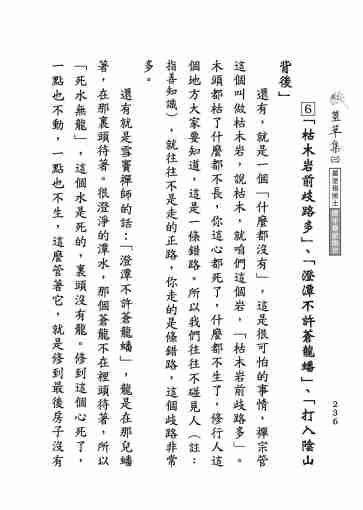 萱草集㈡
236
6「枯木岩前歧路多」、「澄潭不許蒼龍蟠」、「打入陰山
背後」
還有，就是一個「什麼都沒有」，這是很可怕的事情，禪宗管
這個叫做枯木岩，說枯木，就咱們這個岩，「枯木岩前歧路多」。
木頭都枯了什麼都不長，你這心都死了，什麼都不生了，修行人這
個地方大家要知道，這是一條錯路。所以我們往往不碰見人（註：
指善知識），就往往不是走的正路，你走的是條錯路，這個歧路非常
多。
還有就是雪竇禪師的話：「澄潭不許蒼龍蟠」，龍是在那兒蟠
著，在那裏頭待著。很澄淨的潭水，那個蒼龍不在裡頭待著，所以
「死水無龍」，這個水是死的，裏頭沒有龍。修到這個心死了，
一點也不動，一點也不生，這麼管著它，就是修到最後房子沒有